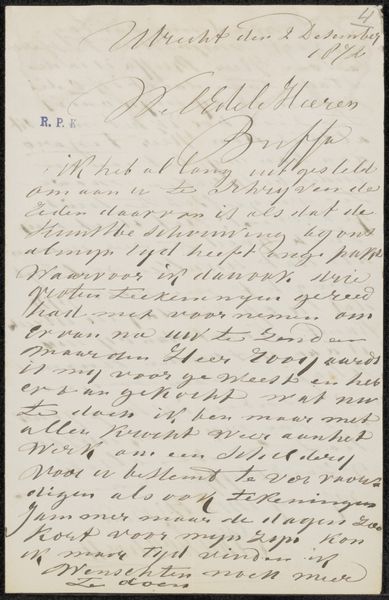 4
Utrecht den 2 December
187
Wel Edele Heeren
Buffa
R.P.K
ik heb al lang uit gesteld
om aan u te schryven de
reden daarvan is als dat de
Kunstbeschouwing by ons
al myn tyd heeft
waarvoor ik dan ook drie
groten teekeningen gereed
had met voornemen om
er van na uw te zenden
maar den Heer
is my voor ge weest en heb
er van gekocht wat nu
te doen ik ben maar met
allen kracht weer aan het
werk om een schildery
voor u bestemt te vervaar
digen als ook tekeningen
Jammer maar de dagen zoo
kort voor myn zyn kon
ik maar tyd vinden ik
Wenschten noch meer
te doen